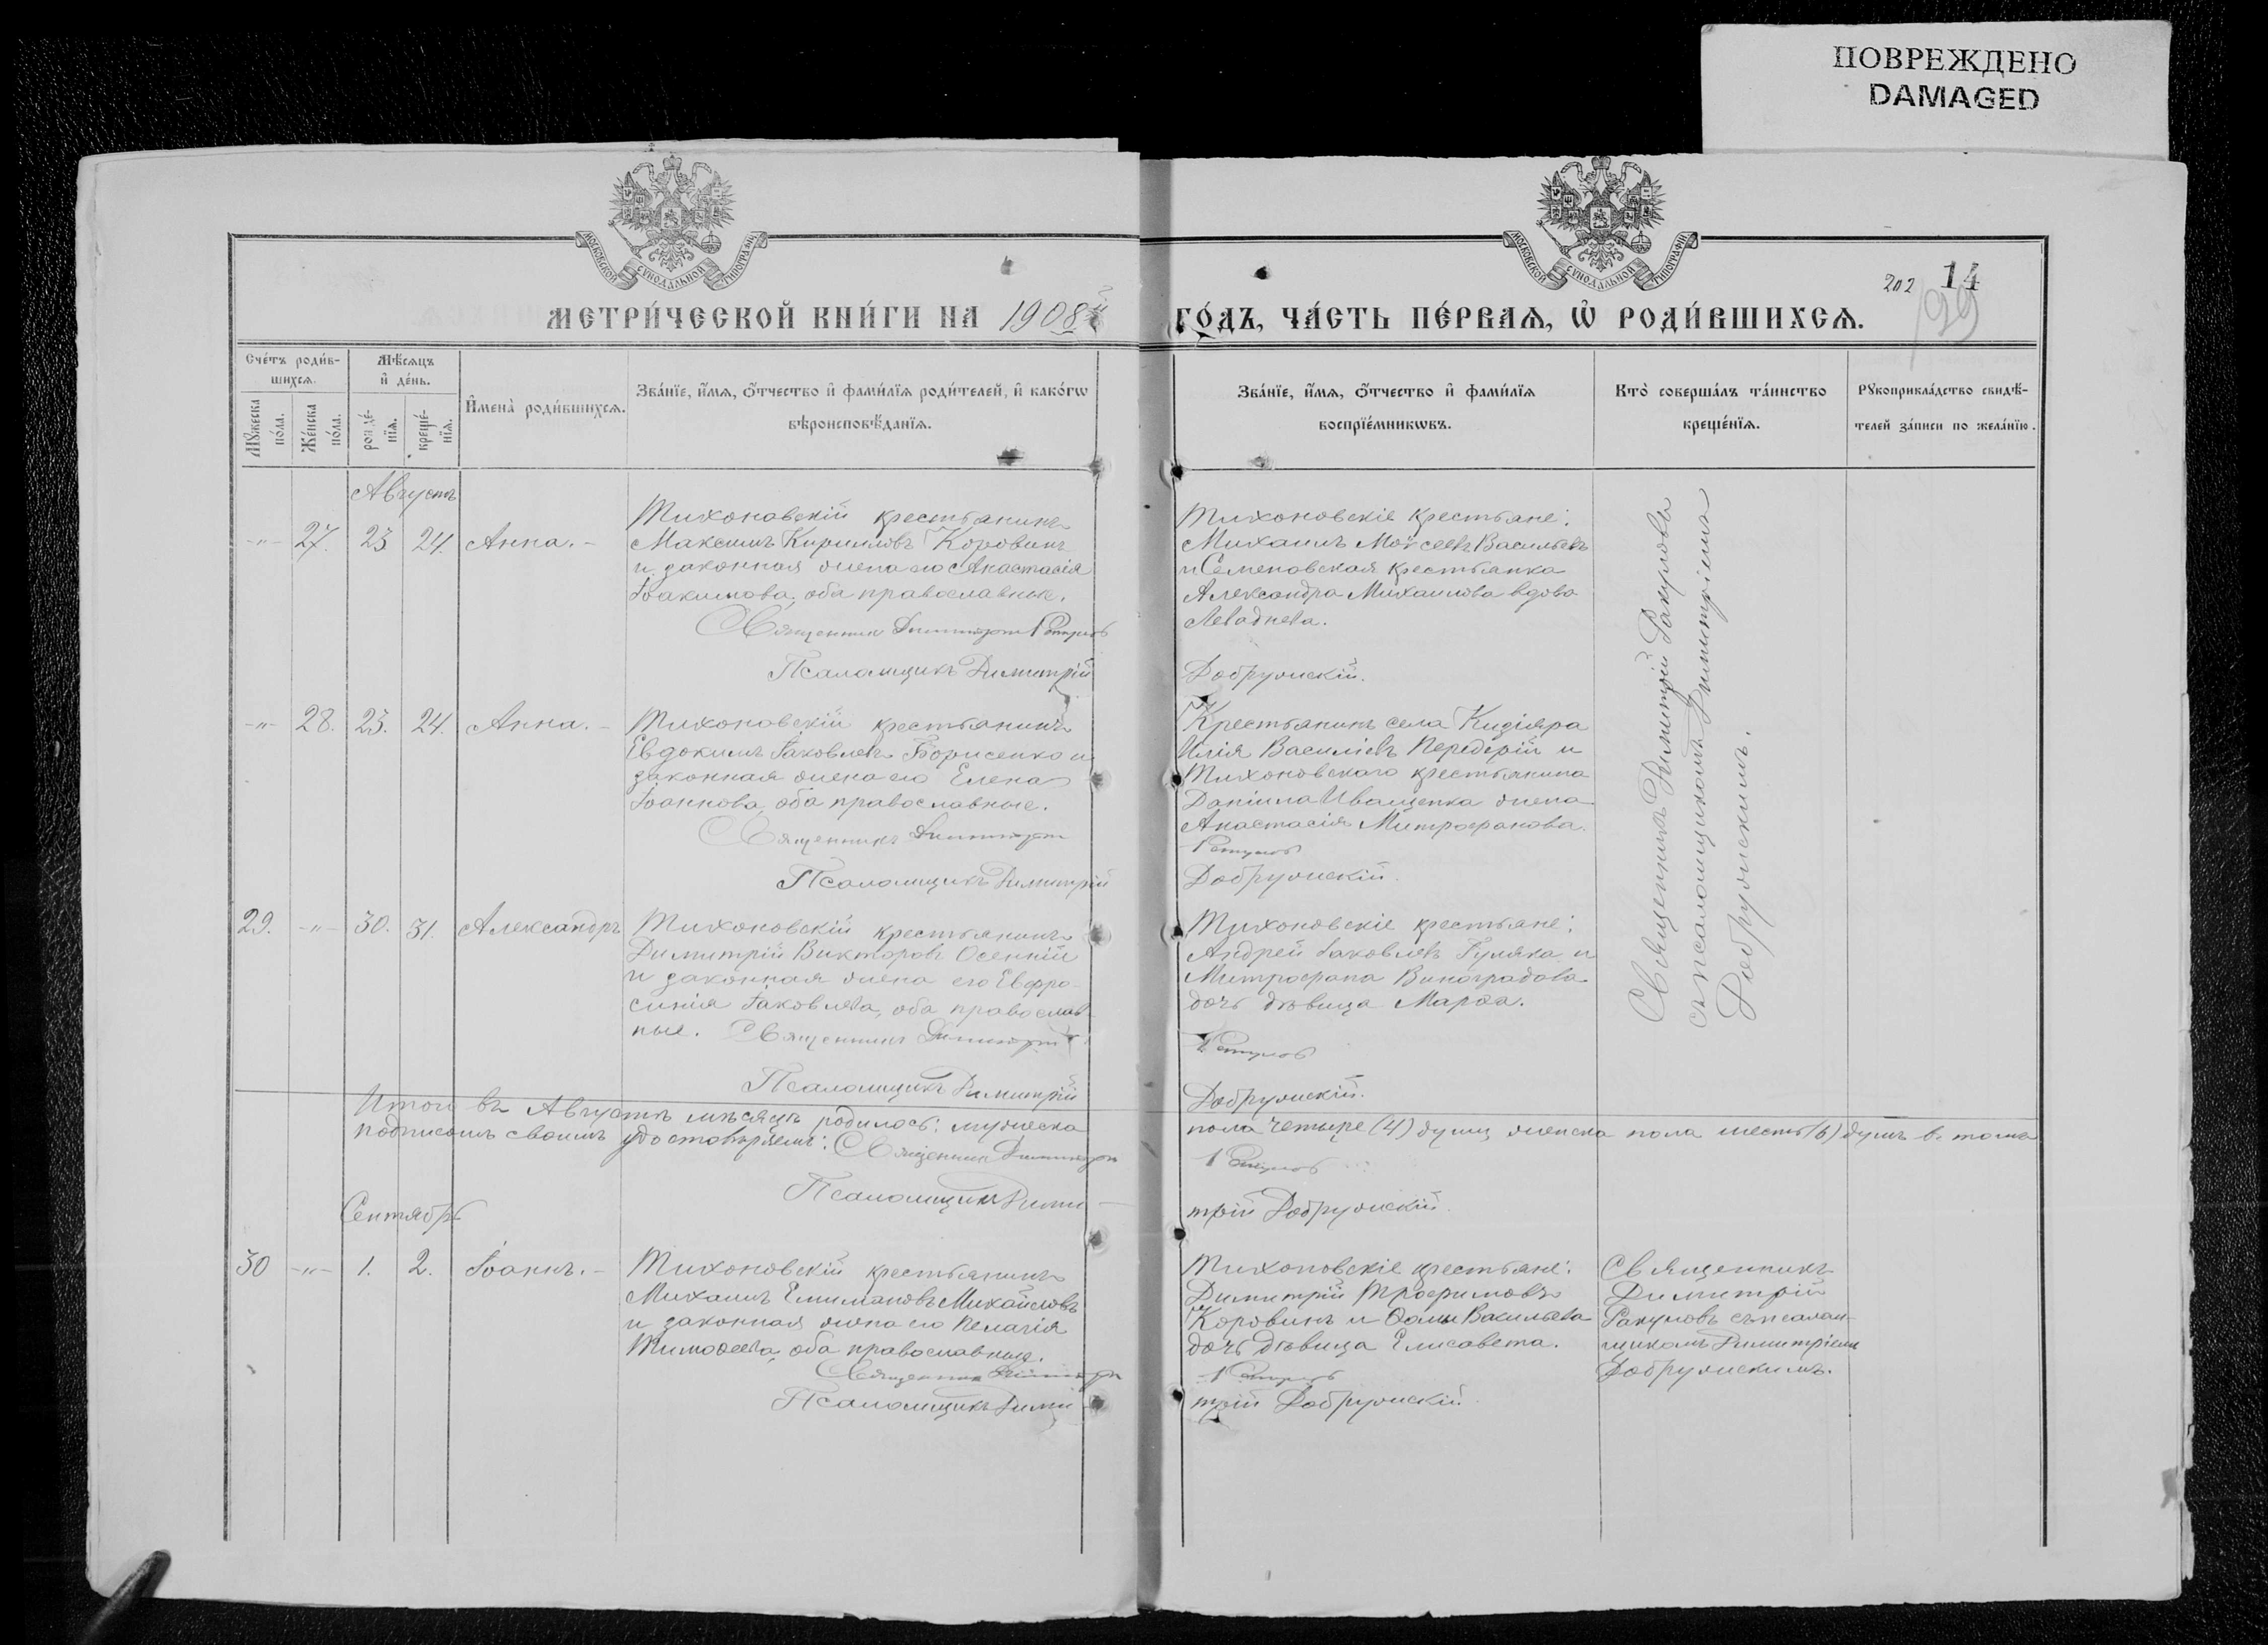 ПОВРЕЖДЕНО
DAMAGED
МОСКОВСКОЙ СѴНОДАЛЬНОЙ ТИПОГРАФІИ
МОСКОВСКОЙ СѴНОДАЛЬНОЙ ТИПОГРАФІИ
202 14
199
МЕТРИ́ЧЕСКОЙ КНИ́ГИ НА 1908й
ГО́ДЪ, ЧА́СТЬ ПЕ́РВАѦ, Ѡ҆ РОДИ́ВШИХСѦ.
Сче́тъ роди́в-
шихсѧ.
Мѣ́сѧцъ
и҆ де́нь.
Мꙋ́жеска
по́ла.
Же́нска
по́ла.
рожде́-
нїѧ.
креще́-
нїѧ.
И҆мена̀ роди́вшихсѧ.
Зва́нїе, и҆́мѧ, ѻ҆́тчество и҆ фами́лїѧ роди́телей, и҆ како́гѡ
вѣроисповѣ́данїѧ.
Зва́нїе, и҆́мѧ, ѻ҆́тчество и҆ фами́лїѧ
воспрїе́мникѡвъ.
Кто̀ соверша́лъ та́инство
креще́нїѧ.
Рꙋкоприкла́дство свидѣ́-
телей за́писи по жела́нїю.
Августъ
-„- 27. 23 24. Анна. -
Тихоновскій крестьянинъ
Максимъ Кирилловъ Коровинъ
и законная жена его Анастасія
Іоакимова, оба православные.
Священникъ Димитрій
Псаломщикъ Димитрій
Тихоновскіе крестьяне:
Михаилъ Моѵсеевъ Васильевъ
и Семеновская крестьянка
Александра Михаилова вдова
Леваднева.
Добружскій.
Священникъ Димитрій Ракуловъ
съ псаломщикомъ Димитріемъ
Добружскимъ.
-„- 28. 23. 24. Анна. -
Тихоновскій крестьянинъ
Евдокимъ Іаковлевъ Борисенко и
законная жена его Елена
Іоаннова, оба православные.
Священникъ Димитрій
Псаломщикъ Димитрій
Крестьянинъ села Кизіяра
Илія Василіевъ Передерій и
Тихоновскаго крестьянина
Даніила Иващенка жена
Анастасія Митрофанова.
Добружскій.
29. -„- 30. 31. Александръ
Тихоновскій крестьянинъ
Димитрій Викторовъ Осенній
и законная жена его Евфро-
синія Іаковлева, оба православ-
ные. Священникъ Димитрій
Псаломщикъ Димитрій
Тихоновскіе крестьяне:
Андрей Іаковлевъ Гуляка и
Митрофана Виноградова
дочь дѣвица Марѳа.
Добружскій.
Итого въ Августѣ мѣсяцѣ родилось: мужеска пола четыре (4) душъ женска пола шесть (6) душъ въ томъ
подписомъ своимъ удостовѣряемъ: Священникъ Димитрій
Псаломщикъ Дими- трій Добружскій.
Сентябрь
30 -„- 1. 2. Іоаннъ. -
Тихоновскій крестьянинъ
Михаилъ Михайловъ
и законная жена его Пелагія
Тимоѳеева, оба православные.
Священникъ Димитрій
Псаломщикъ Дими-
Тихоновскіе крестьяне:
Димитрій Трофимовъ
Коровинъ и Ѳомы Васильева
дочь дѣвица Елисавета.
трій Добружскій.
Священникъ
Димитрій
Ракуловъ съ псалом-
щикомъ Димитріемъ
Добружскимъ.